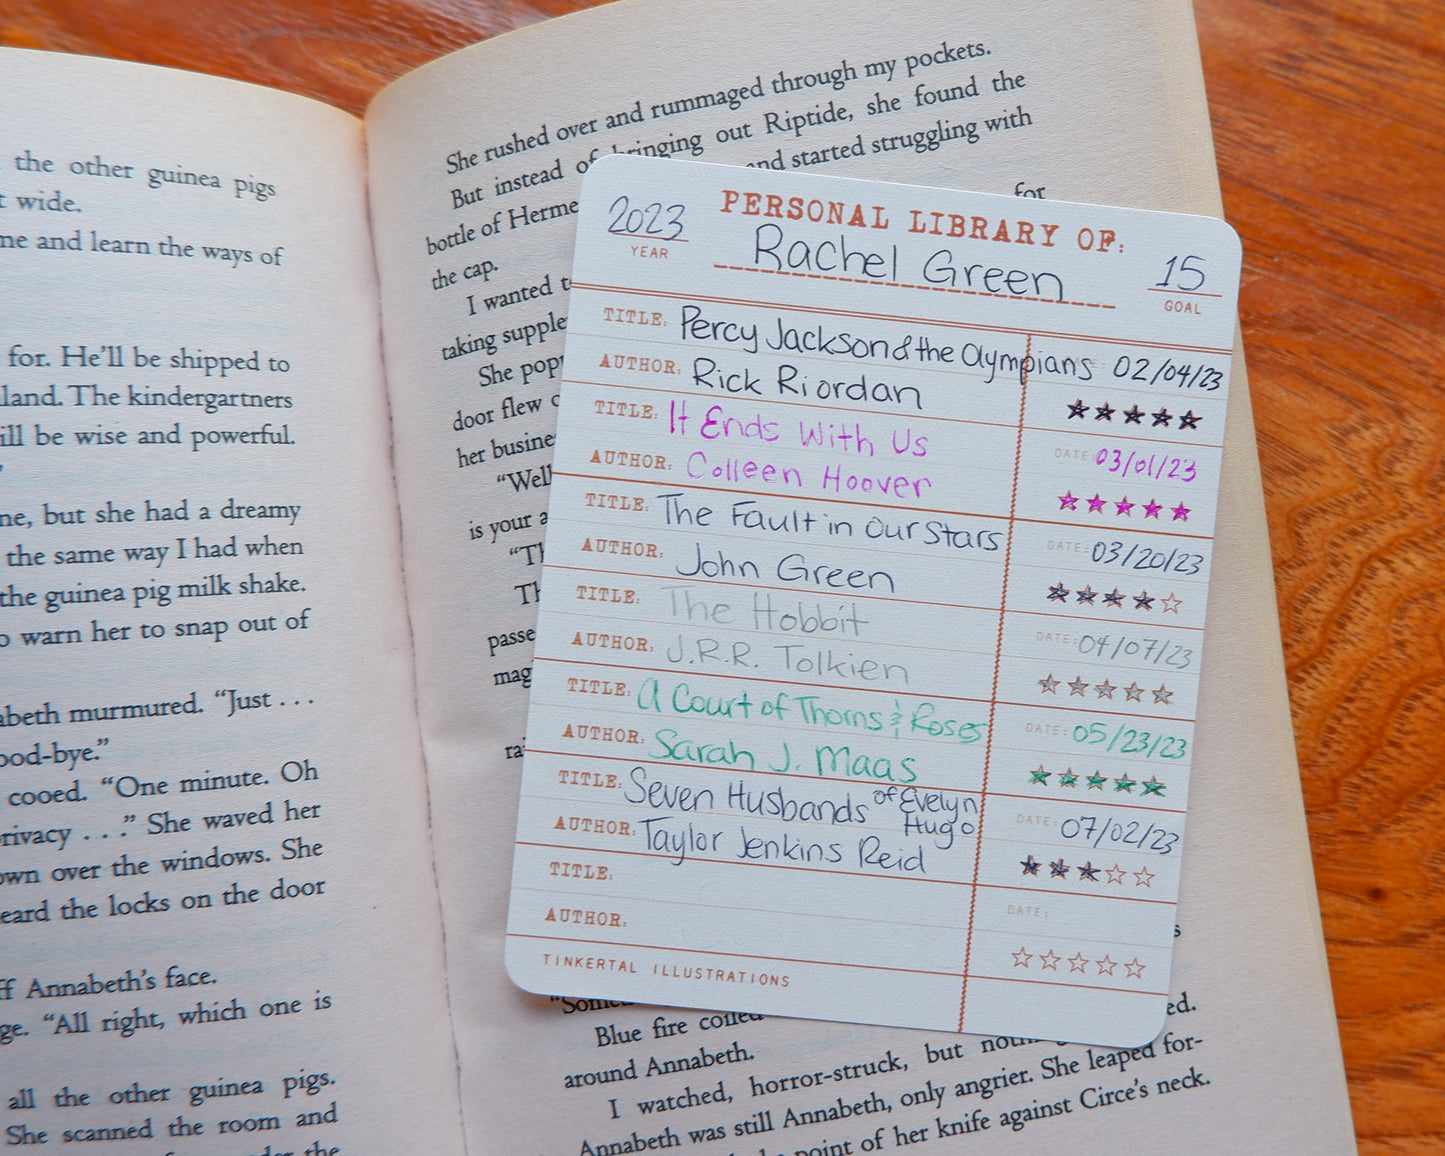 the other guinea pigs
t wide.
me and learn the ways of
for. He'll be shipped to
land. The kindergartners
ill be wise and powerful.
ne, but she had a dreamy
the same way I had when
the guinea pig milk shake.
o warn her to snap out of
abeth murmured. “Just . . .
ood-bye.”
cooed. “One minute. Oh
rivacy . . .” She waved her
own over the windows. She
eard the locks on the door
ff Annabeth's face.
ge. “All right, which one is
all the other guinea pigs.
She scanned the room and
the
She rushed over and rummaged through my pockets.
But instead of bringing out Riptide, she found the
bottle of Herme
and started struggling with
the cap.
for
I wanted t
taking supple
She pop
door flew o
her busine
“Well
is your a
“Th
Th
passe
mag
rai
2023
YEAR
PERSONAL LIBRARY OF:
Rachel Green
15
GOAL
TITLE: Percy Jackson & the Olympians 02/04/23
AUTHOR: Rick Riordan
TITLE: It Ends With Us
DATE: 03/01/23
AUTHOR: Colleen Hoover
TITLE: The Fault in Our Stars
DATE: 03/20/23
AUTHOR: John Green
TITLE: The Hobbit
DATE: 04/07/23
AUTHOR: J.R.R. Tolkien
TITLE: A Court of Thorns & Roses
DATE: 05/23/23
AUTHOR: Sarah J. Maas
TITLE: Seven Husbands of Evelyn Hugo
DATE: 07/02/23
AUTHOR: Taylor Jenkins Reid
TITLE:
DATE:
AUTHOR:
TINKERTAL ILLUSTRATIONS
s
“Some
ed.
Blue fire coiled
around Annabeth.
I watched, horror-struck, but
Annabeth was still Annabeth, only angrier. She leaped for-
point of her knife against Circe's neck.